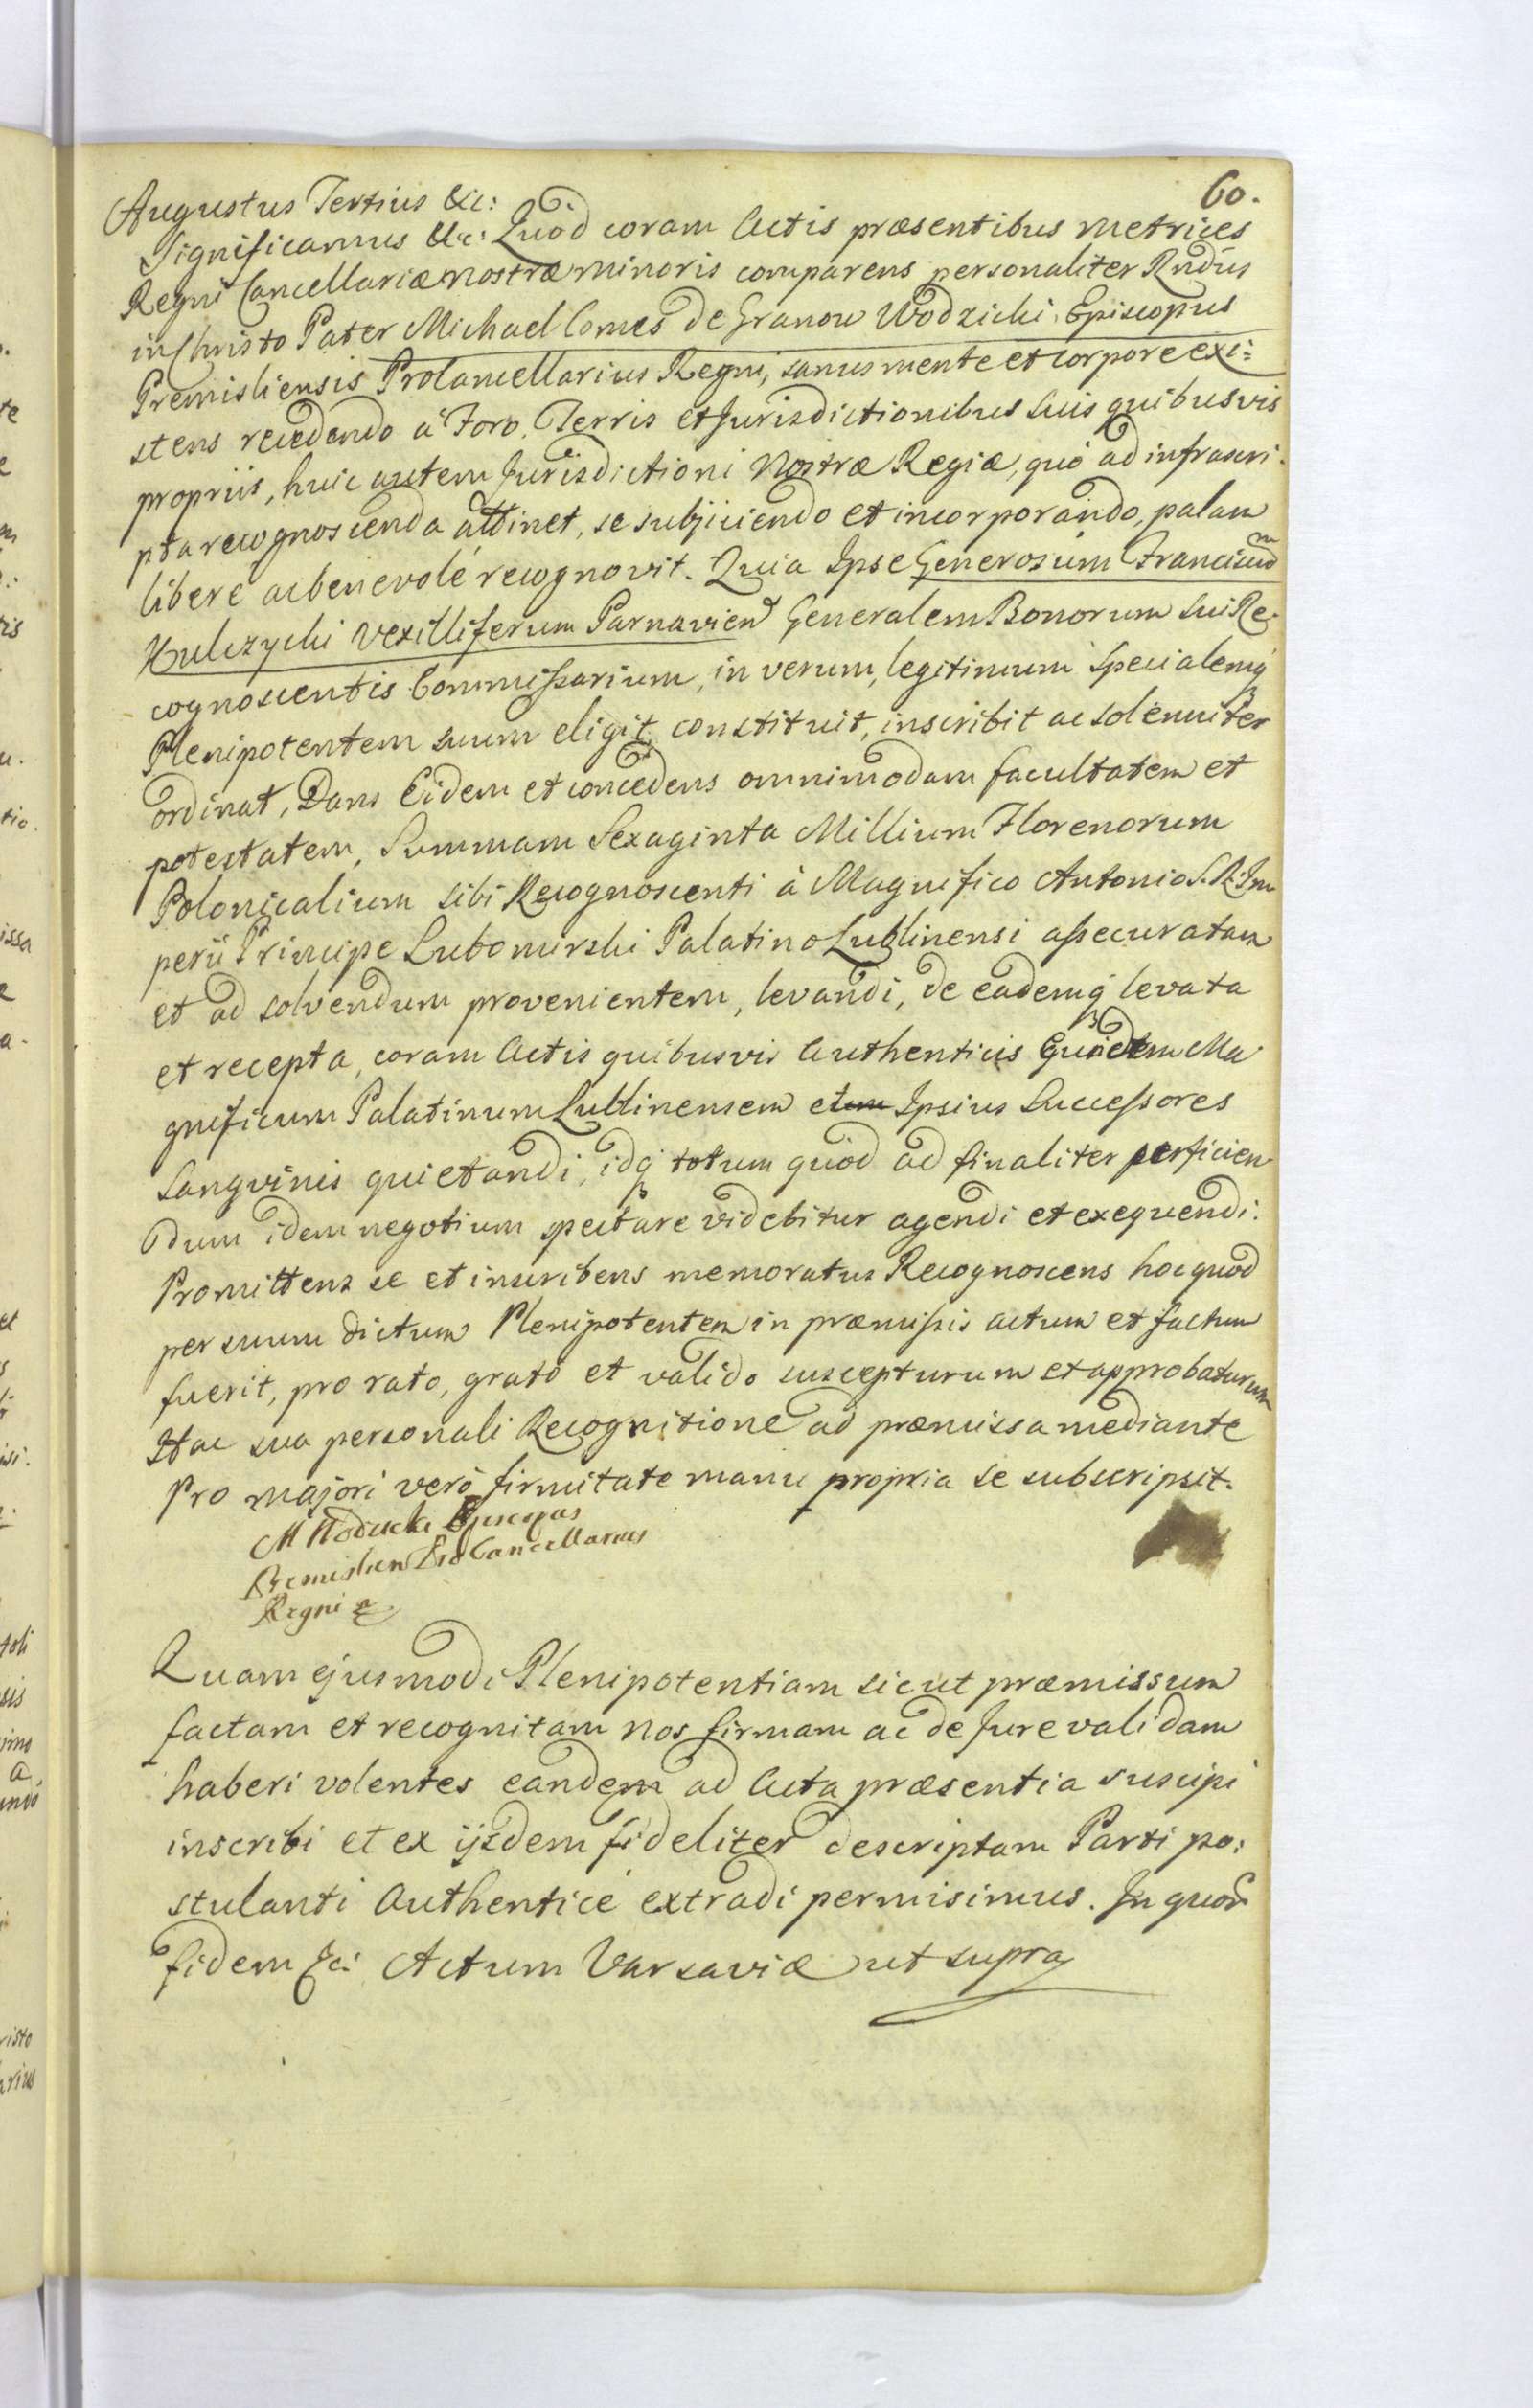 60.
Augustus Tertius &c:
Significamus &c: Quod coram Actis præsentibus Metrices
Regni Cancellariæ Nostræ Minoris comparens personaliter Rndus
in Christo Pater Michael Comes de Granow Wodzicki Episcopus
Premisliensis Procancellarius Regni, sanus mente et corpore exi=
stens recedendo à Foro, Terris et Jurisdictionibus suis quibusvis
propriis, huic autem Jurisdictioni Nostræ Regiæ, quò ad infrascri.
pta recognoscenda attinet, se subjiciendo et incorporando, palam
libere ac benevolè recognovit. Quia Ipse Generosum Franciscum
Kulczycki Vexilliferum Parnavien Generalem Bonorum sui Re.
cognoscentis Commissarium, in verum, legitimum Specialemq
Plenipotentem suum eligit, constituit, inscribit ac solenniter
ordinat, Dans Eidem et concedens omnimodam facultatem et
potestatem, Summam Sexaginta Millium Florenorum
Polonicalium sibi Recognoscenti à Magnifico Antonio S. R. Im
perii Principe Lubomirski Palatino Lublinensi assecuratam
et ad solvendum provenientem, levandi, de eademq levata
et recepta, coram Actis quibusvis Authenticis Eundem Ma
gnificum Palatinum Lublinensem et Ipsius Successores
Sangvinis quietandi, idq totum quod ad finaliter perficien
dum idem negotium spectare videbitur agendi et exequendi.
Promittens se et inscribens memoratus Recognoscens hoc quod
per suum dictum Plenipotentem in præmissis actum et factum
fuerit, pro rato, grato et valido suscepturum et approbaturum
Hac sua personali Recognitione ad præmissa mediante
Pro majori verò firmitate manu propria se subscripsit.
M Wodzicki Episcopus
Premislien ProCancellarius
Regni
Quam ejusmodi Plenipotentiam sicut præmissum
factam et recognitam Nos firmam ac de Jure validam
haberi volentes eandem ad Acta præsentia suscipi
inscribi et ex ijsdem fideliter descriptam Parti po:
stulanti Authenticè extradi permisimus. In quor
fidem &c: Actum Varsaviæ ut supra